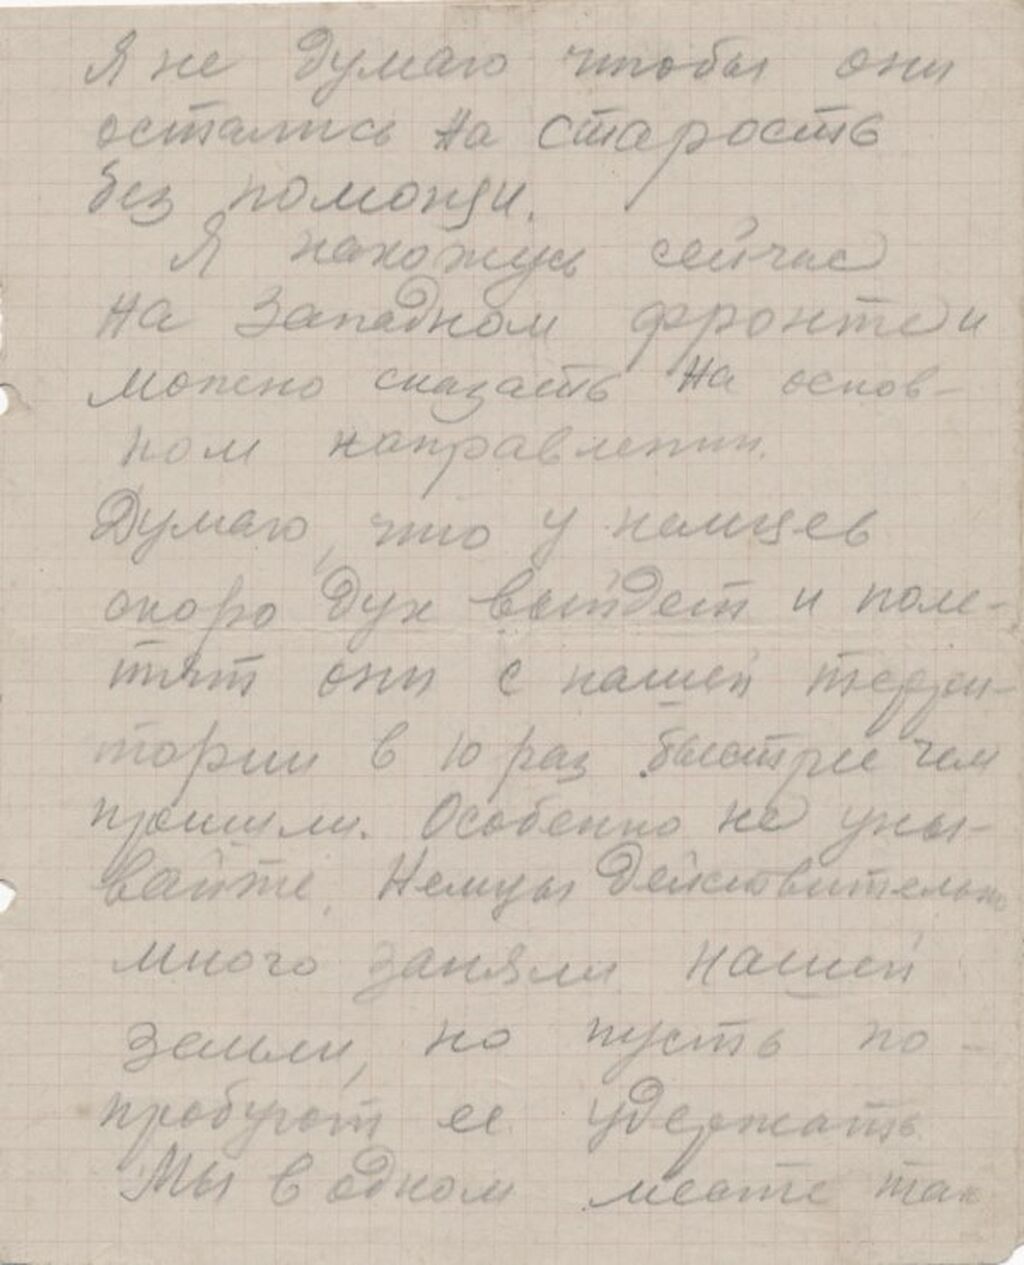 Я не думаю чтобы они
остались на старость
без помощи.
Я нахожусь сейчас
на Западном фронте и
можно сказать на основ-
ном направлении.
Думаю, что у немцев
скоро дух выйдет и поле-
тят они с нашей терри-
тории в 10 раз быстрее чем
пришли. Особенно не уны-
вайте. Немцы действительно
много заняли нашей
земли, но пусть по-
пробуют ее удержать.
Мы в одном месте так